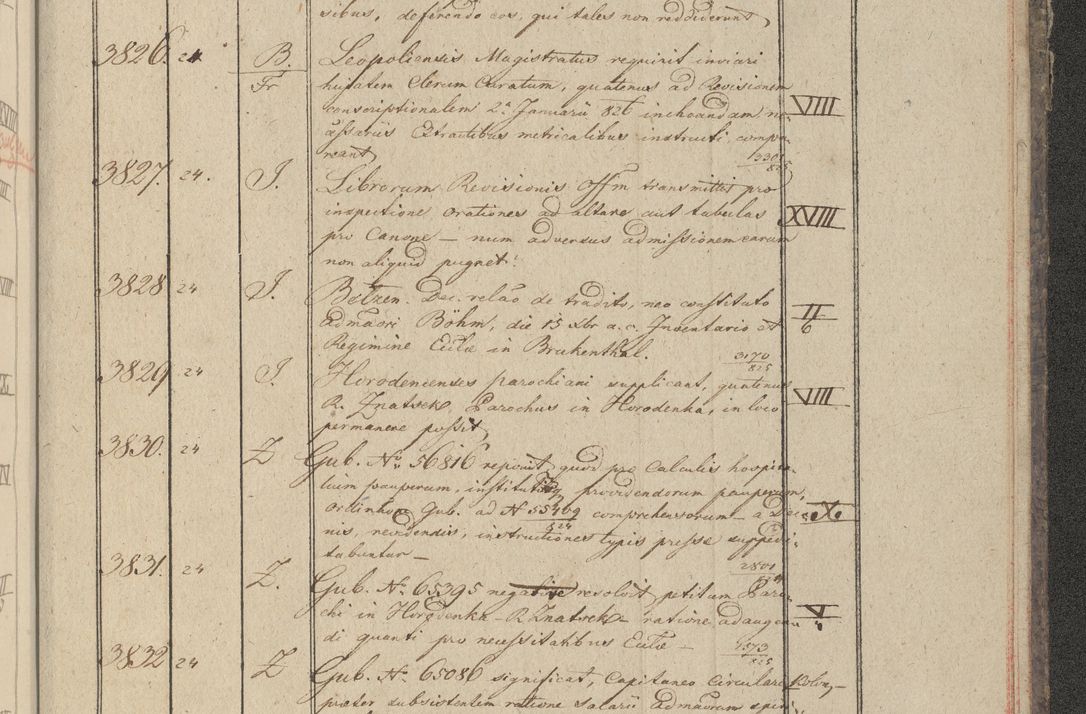 sibus, deferendo eos, qui tales non reddiderunt,
3826. 24 B. Leopoliensis Magistratus requirit inviari
Fr hujatem Clerum Curatum, quatenus ad Revisionem
conscriptionalem 2a Januarii 826 inchoandam ne- VIII
cessariis Extractibus metricalibus instructi, compa-
reant, 3307/825
3827. 24. J. Librorum Revisionis Offm transmittit pro
inspectione orationes ad altare aut tabulas XVIII
pro Canone — num adversus admissionem earum
non aliquid pugnet?
3828 24 J. Betzen. Dec. relão de tradito, neo constituto
admãori Böhm, die 15 Xbr a. c. Inventario et II/6
Regimine Ecclæ in Brukenthal. 3170/825
3829 24 J. Horodenienses parochiani supplicant, quatenus
R. Znatsek Parochus in Horodenka, in loco VIII
permanere possit,
3830. 24 Z Gub. No. 56816 reponit, quod pro Calculis hospita-
lium pauperum, providendorum pauperum,
Gub. ad N 55409/824 comprehensorum — a Deca- X
nis, instructiones typis presse suppedi-
tabuntur —
3831. 24 Z. Gub. No. 65395 negative resolvit petitum Paro- 2801
chi in Horodenka — R. Znatsek — ratione adaugen- V
di quanti pro necessitatibus Ecclæ —
3832 24 Z Gub. No. 65086 significat, Capitaneo Circulari Kolom. —
præter subsistentem ratione salarii admãorum